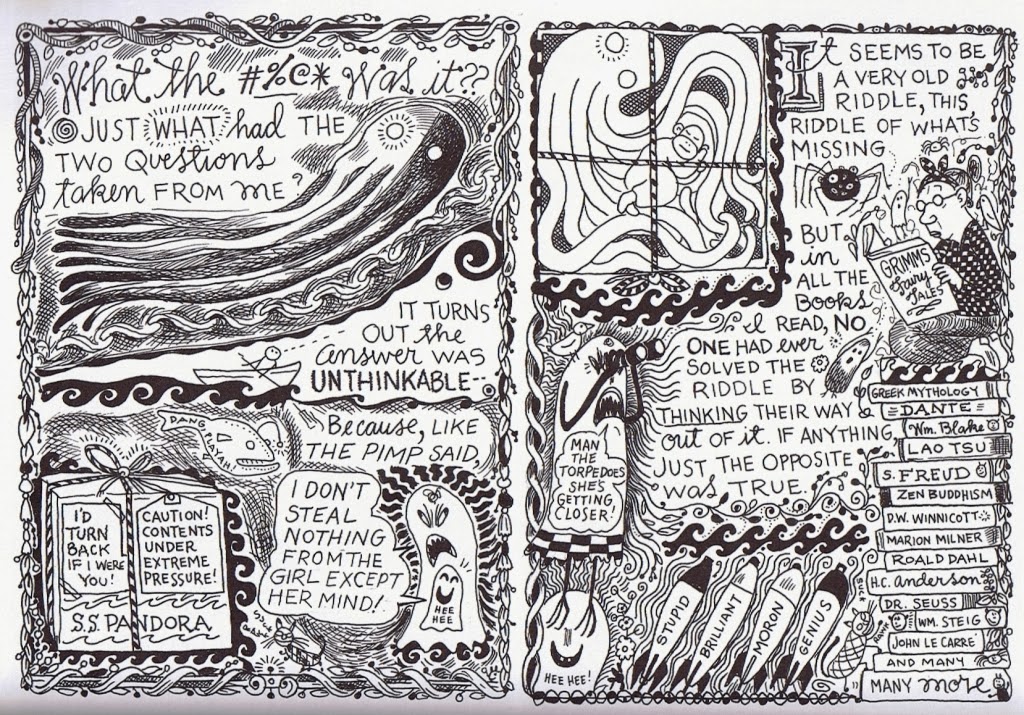 What the #%@* was it??
JUST WHAT had THE
TWO Questions
taken FROM me?
IT TURNS
OUT the
answer WAS
UNTHINKABLE-
Because, LIKE
THE PIMP SAID,
DANG PLAYAH!
I'D
TURN
BACK
IF I WERE
YOU!
CAUTION!
CONTENTS
UNDER
EXTREME
PRESSURE!
S.S. PANDORA
I DON'T
STEAL
NOTHING
FROM THE
GIRL EXCEPT
HER MIND!
HEE
HEE
It SEEMS TO BE
A VERY OLD
RIDDLE, THIS
RIDDLE OF WHAT'S
MISSING
BUT
in
ALL THE
Books
I READ, NO
ONE HAD ever
SOLVED THE
RIDDLE BY
THINKING THEIR WAY
out OF it. IF ANYTHING,
JUST THE OPPOSITE
was TRUE.
GRIMMS
Fairy
TALES
MAN
THE
TORPEDOES
SHE'S
GETTING
CLOSER!
HEE HEE!
STUPID
BRILLIANT
MORON
GENIUS
GREEK MYTHOLOGY
DANTE
Wm. Blake
LAO TSU
S. FREUD
ZEN BUDDHISM
D.W. WINNICOTT
MARION MILNER
ROALD DAHL
H.C. anderson
DR. SEUSS
WM. STEIG
JOHN LE CARRÉ
AND MANY
MANY more